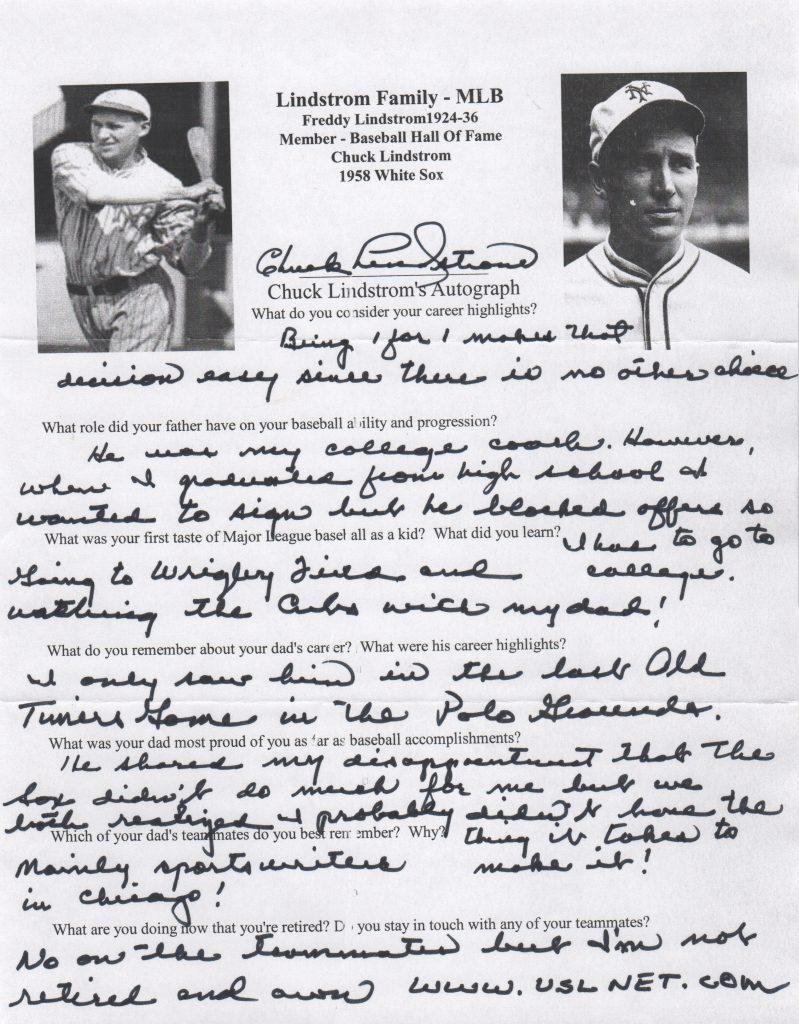 Lindstrom Family - MLB
Freddy Lindstrom1924-36
Member - Baseball Hall Of Fame
Chuck Lindstrom
1958 White Sox
NY
Chuck Lindstrom
Chuck Lindstrom's Autograph
What do you consider your career highlights?
Being 1 for 1 makes that
decision easy since there is no other choice
What role did your father have on your baseball ability and progression?
He was my college coach. However,
when I graduated from high school I
wanted to sign but he blocked offers so
I had to go to
college.
What was your first taste of Major League baseball as a kid? What did you learn?
Going to Wrigley Field and
watching the Cubs with my dad!
What do you remember about your dad's career? What were his career highlights?
I only saw him in the last Old
Timers Game in the Polo Grounds.
What was your dad most proud of you as far as baseball accomplishments?
He shared my disappointment that the
Sox didn't do much for me but we
both realized I probably didn't have the
thing it takes to
make it!
Which of your dad's teammates do you best remember? Why?
Mainly sportswriters
in Chicago!
What are you doing now that you're retired? Do you stay in touch with any of your teammates?
No on the teammates but I'm not
retired and own www.USLNET.com